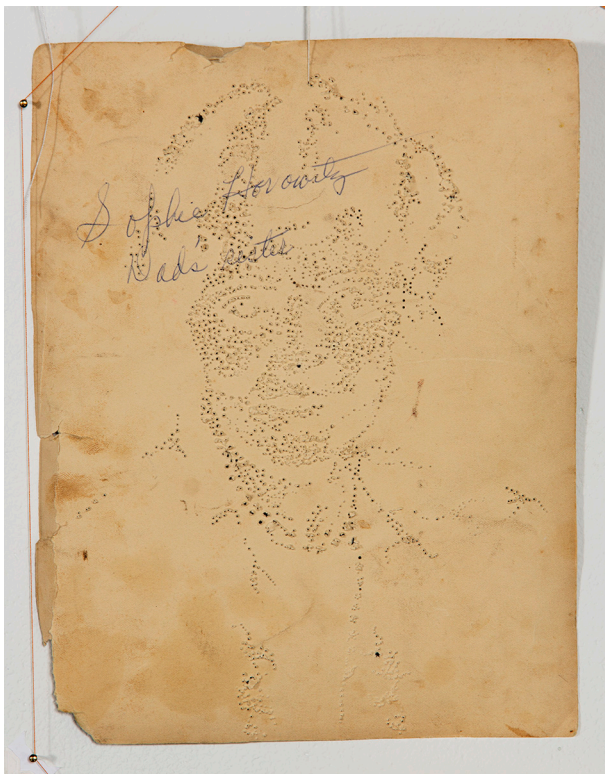 Sophie Horowitz
Dad's sister